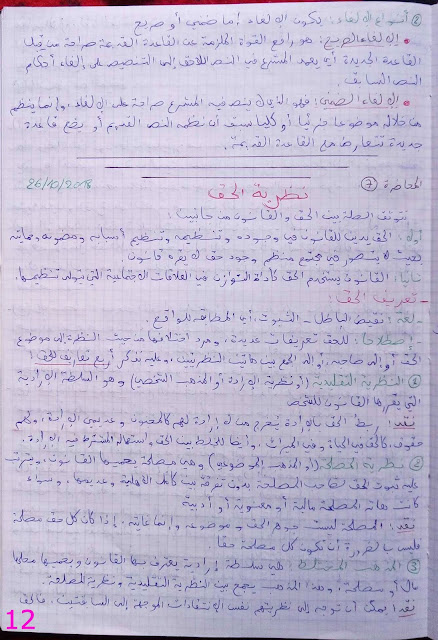 ② أنواع الإلغاء: يكون الإلغاء إما ضمني أو صريح
• الإلغاء الصريح: هو رفع القوة الملزمة عن القاعدة القديمة صراحة من قبل
القاعدة الجديدة أي يعمد المشرع في النص اللاحق إلى التنصيص على إلغاء أحكام
النص السابق.
• الإلغاء الضمني: فهو الذي لا ينص فيه المشرع صراحة على الإلغاء وإنما ينظم
من خلاله موضوعا جزئيا أو كليا سبق أن نظمه النص القديم أو يضع قاعدة
جديدة تتعارض مع القاعدة القديمة.
المحاضرة ⑦ 26/10/2018
نظرية الحق
تتوقف الصلة بين الحق والقانون من جانبين:
أولا: الحق يدين للقانون في وجوده وتنظيمه وتنظيم أسبابه ومضمونه وحمايته
بحيث لا يتصور في مجتمع منظم وجود حق لا يقره قانون.
ثانيا: القانون يستخدم الحق كأداة للتوازن في العلاقات الاجتماعية التي يتولى تنظيمها.
- تعريف الحق:
- لغة: نقيض الباطل - الثبوت، أي المطابقة للواقع.
- إصطلاحا: للحق تعريفات عديدة، ومرد اختلافها من حيث النظرة إلى موضوع
الحق أو إلى صاحبه، أو إلى الجمع بين هاتين النظريتين، وعليه نذكر أربع تعاريف للحق:
① النظرية التقليدية (أو نظرية الإرادة أو المذهب الشخصي) وهو السلطة الإرادية
التي يقررها القانون للشخص
نقد: ربط الحق بالإرادة يخرج من لا إرادة لهم كالمجنون وعديمي الإرادة، ولهم
حقوق، كالحق في الحياة وفي الميراث. وأيضا الخلط بين الحق واستعماله المشترط فيه الإرادة.
② نظرية المصلحة (أو المذهب الموضوعي) وهي مصلحة يحميها القانون، ويترتب
عليه ثبوت الحق لصاحب المصلحة بدون تفرقة بين كامل الأهلية وعديمها، وسواء
كانت هاته المصلحة مالية أو معنوية أو أدبية
نقد: المصلحة ليست جوهر الحق وموضوعه وإنما غايته. إذا كان كل حق مصلحة
فليس بالضرورة أن تكون كل مصلحة حقا.
③ المذهب المختلط: هي سلطة إرادية يعترف بها القانون ويحميها محلها
مال أو مصلحة، وهذا المذهب يجمع بين النظرية التقليدية ونظرية المصلحة.
نقد: يمكن أن توجه إلى نظريتهم نفس الانتقادات الموجهة إلى السابقتين. فالحق
12